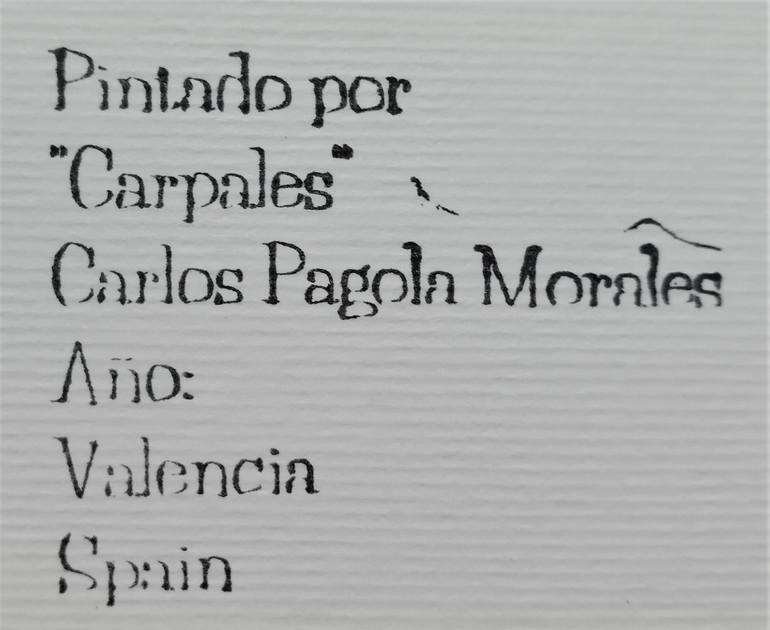 Pintado por
"Carpales"
Carlos Pagola Morales
Año:
Valencia
Spain